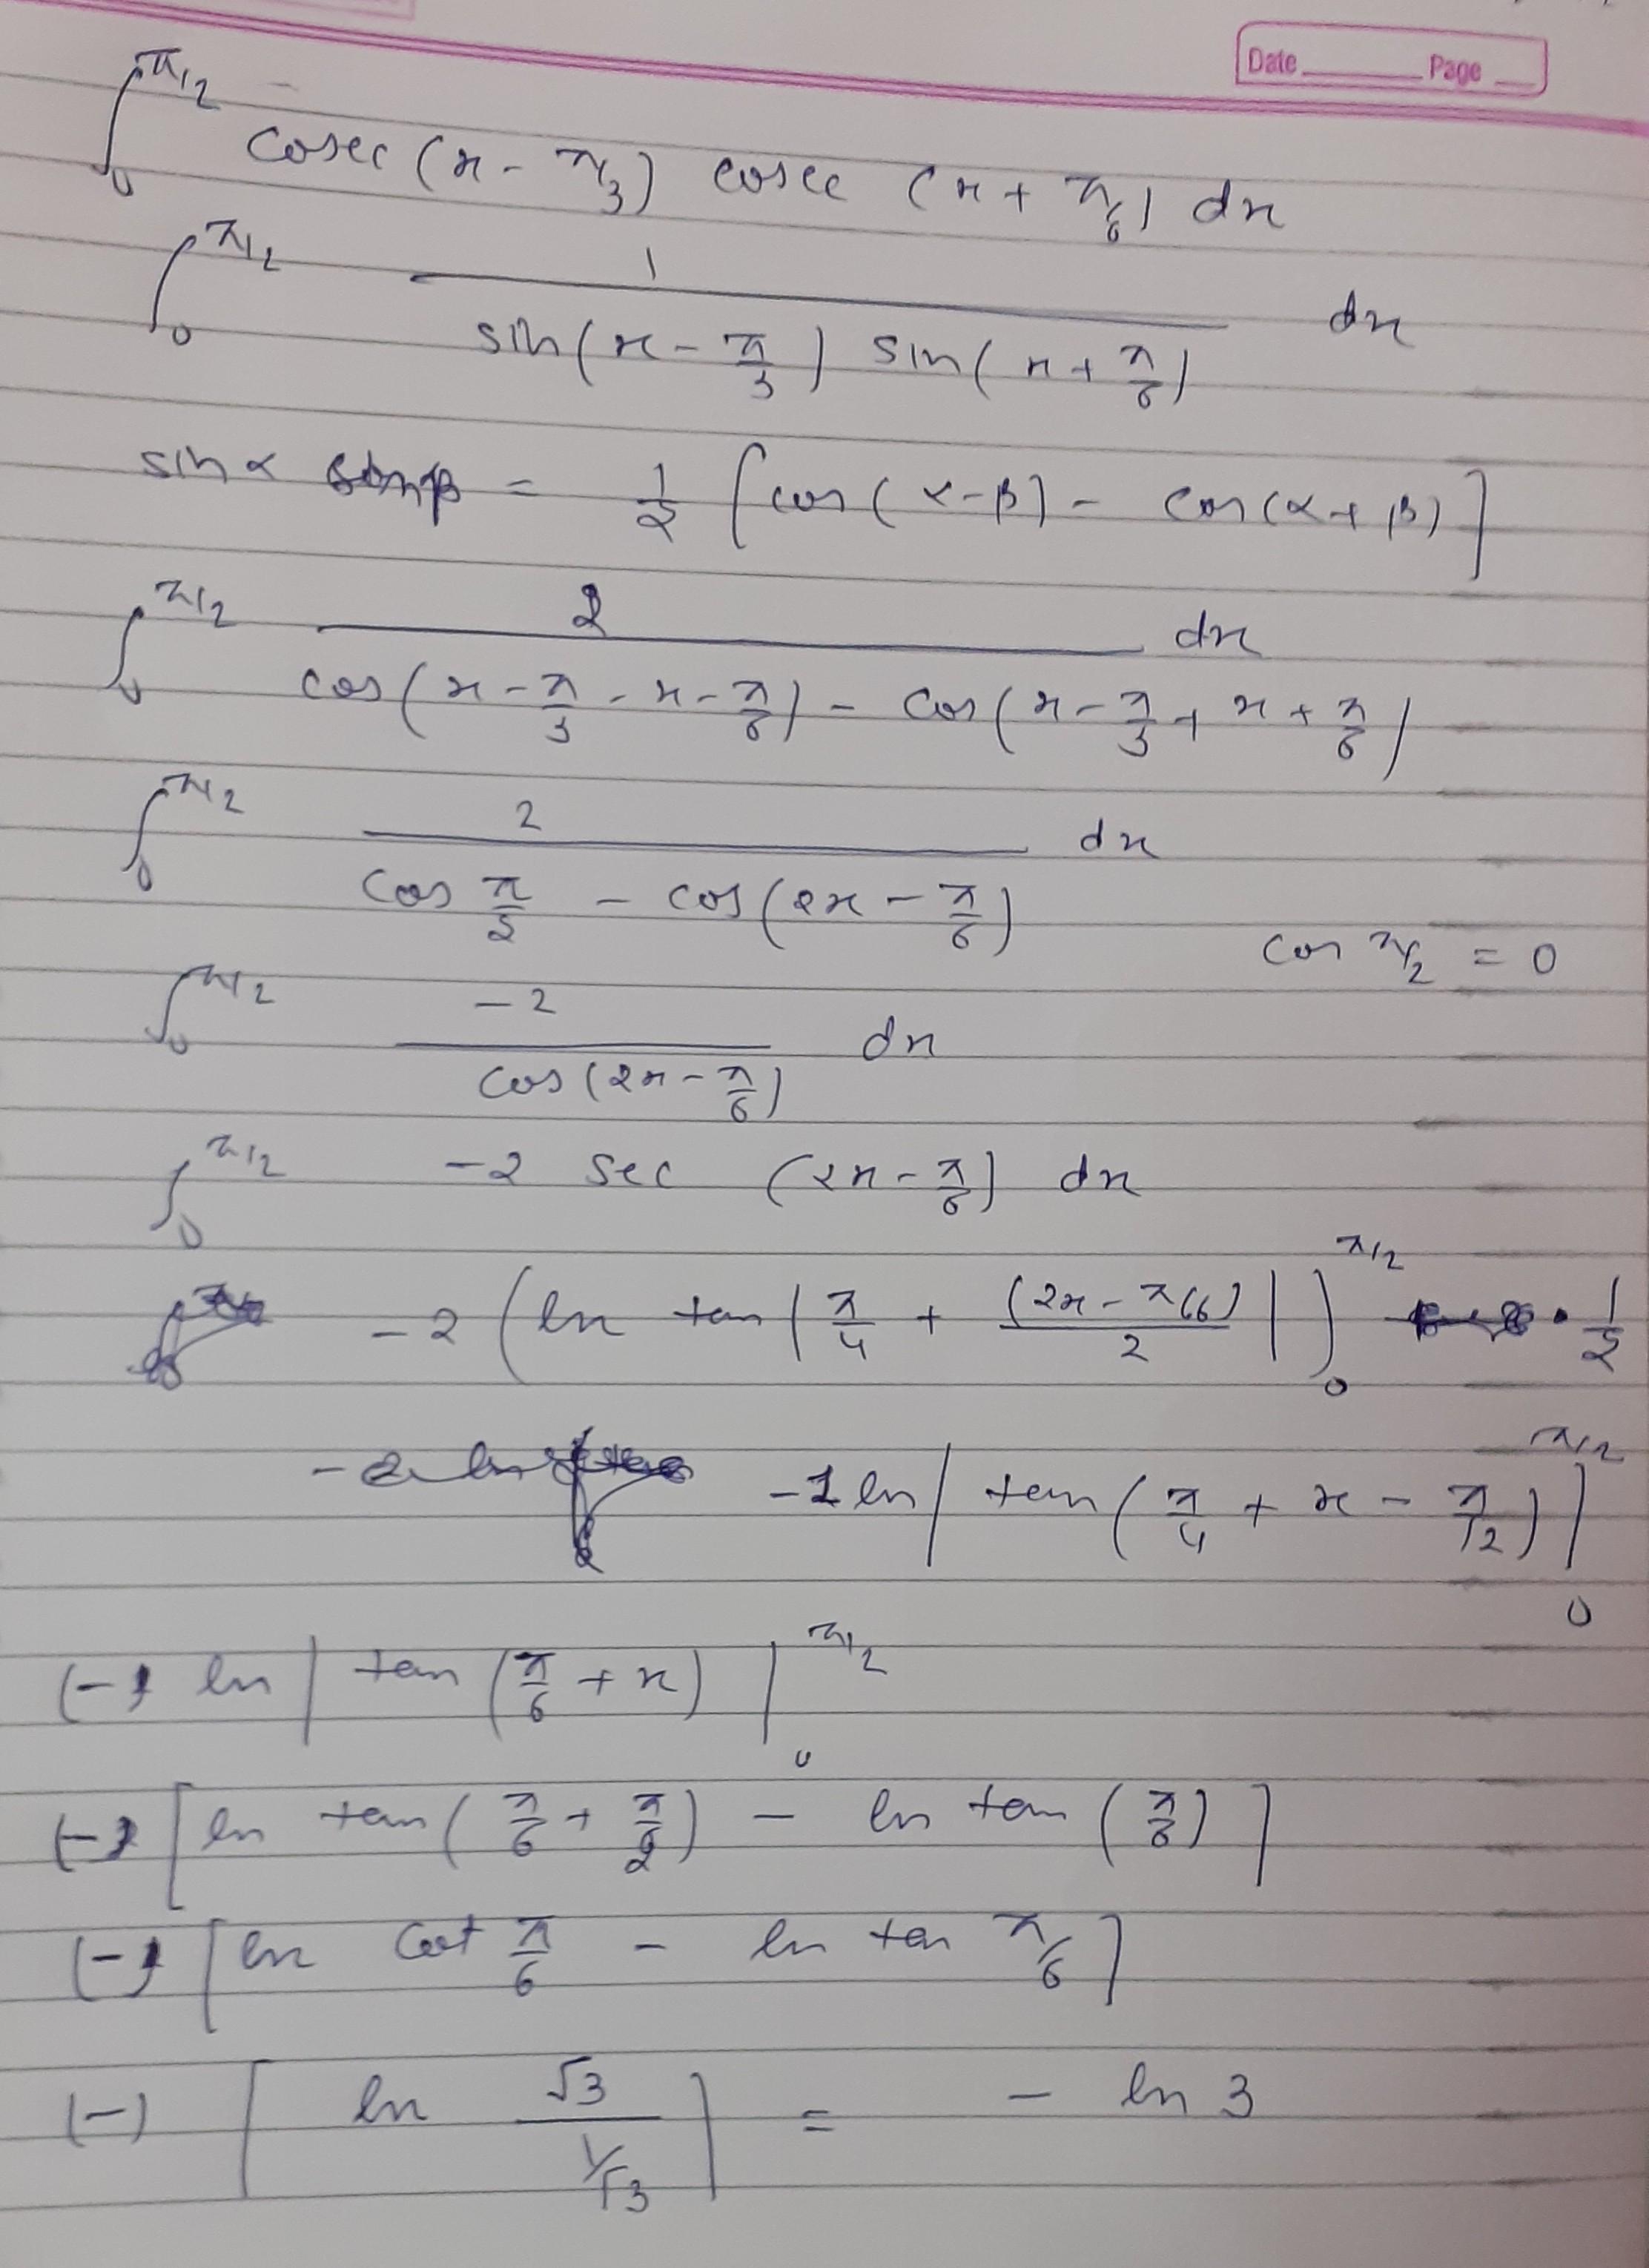 Date Page
∫₀^{π/2} cosec (x - π/3) cosec (x + π/6) dx
∫₀^{π/2} 1 / (sin(x - π/3) sin(x + π/6)) dx
sin α sin β = 1/2 [cos(α-β) - cos(α+β)]
∫₀^{π/2} 2 / (cos(x - π/3 - x - π/6) - cos(x - π/3 + x + π/6)) dx
∫₀^{π/2} 2 / (cos π/2 - cos(2x - π/6)) dx
cos π/2 = 0
∫₀^{π/2} -2 / cos(2x - π/6) dx
∫₀^{π/2} -2 sec (2x - π/6) dx
-2 (ln tan |π/4 + (2x - π/6)/2|)₀^{π/2} · 1/2
-1 ln |tan(π/4 + x - π/12)|₀^{π/2}
(-) ln |tan(π/6 + x)|₀^{π/2}
(-) [ln tan(π/6 + π/2) - ln tan(π/6)]
(-) [ln cot π/6 - ln tan π/6]
(-) [ln √3 / 1/√3] = - ln 3